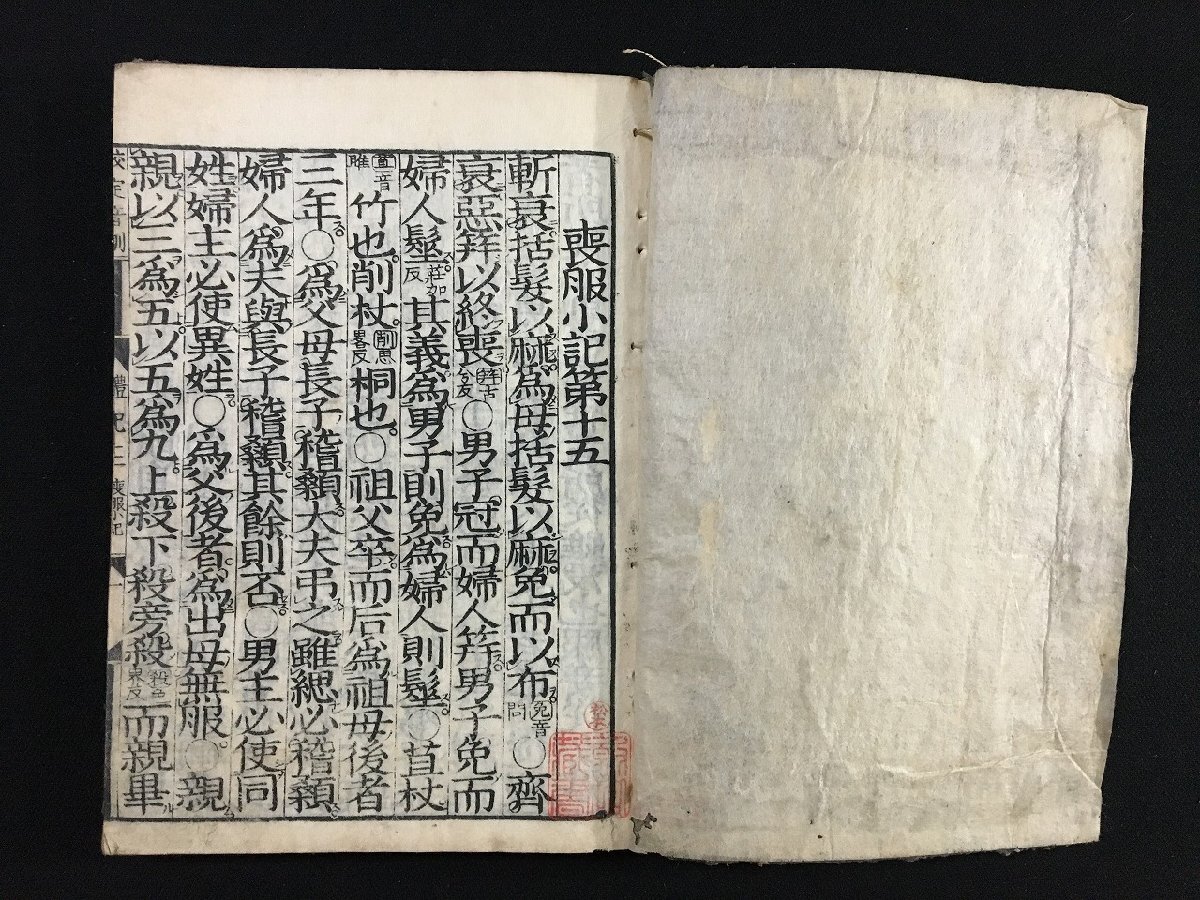 喪服小記第十五
斬衰括髮以麻為母括髮以麻免而以布免音問○齊
衰惡筓以終喪筓古兮反○男子冠而婦人筓男子免而
婦人髽莊加反其義為男子則免為婦人則髽○苴杖
苴音雎竹也削杖削思畧反桐也○祖父卒而后為祖母後者
三年○為父母長子稽顙大夫弔之雖緦必稽顙
婦人為夫與長子稽顙其餘則否○男主必使同
姓婦主必使異姓○為父後者為出母無服○親
親以三為五以五為九上殺下殺旁殺殺色界反而親畢
禮記三 喪服小記 一